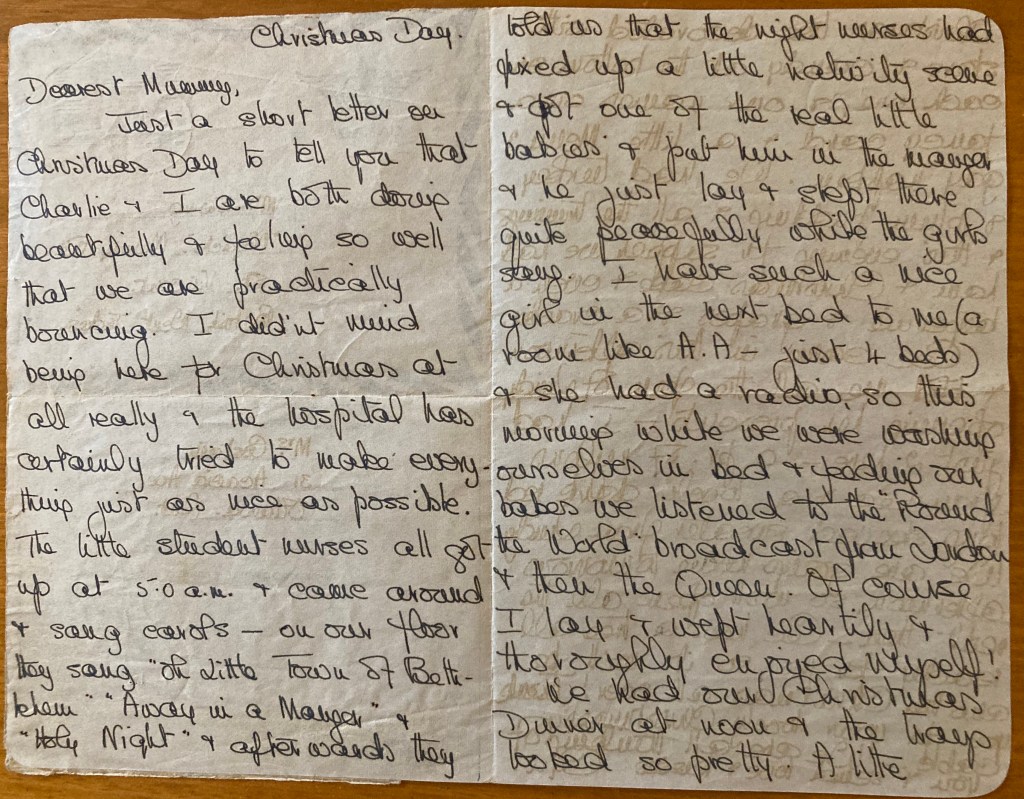 Christmas Day.
Dearest Mummy,
Just a short letter on
Christmas Day to tell you that
Charlie & I are both doing
beautifully & feeling so well
that we are practically
bouncing. I did'nt mind
being here for Christmas at
all really & the hospital has
certainly tried to make every-
thing just as nice as possible.
The little student nurses all got
up at 5.0 a.m. & came around
& sang carols — on our floor
they sang "Oh Little Town of Beth-
lehem" "Away in a Manger" &
"Holy Night" & afterwards they
told us that the night nurses had
fixed up a little nativity scene
& got one of the real little
babies & put him in the manger
& he just lay & slept there
quite peacefully while the girls
sang. I have such a nice
girl in the next bed to me (a
room like A.A — just 4 beds)
& she had a radio, so this
morning while we were washing
ourselves in bed & feeding our
babes we listened to the "Round
the World" broadcast from London
& then the Queen. Of course
I lay & wept heartily &
thoroughly enjoyed myself!
We had our Christmas
Dinner at noon & the trays
looked so pretty. A little